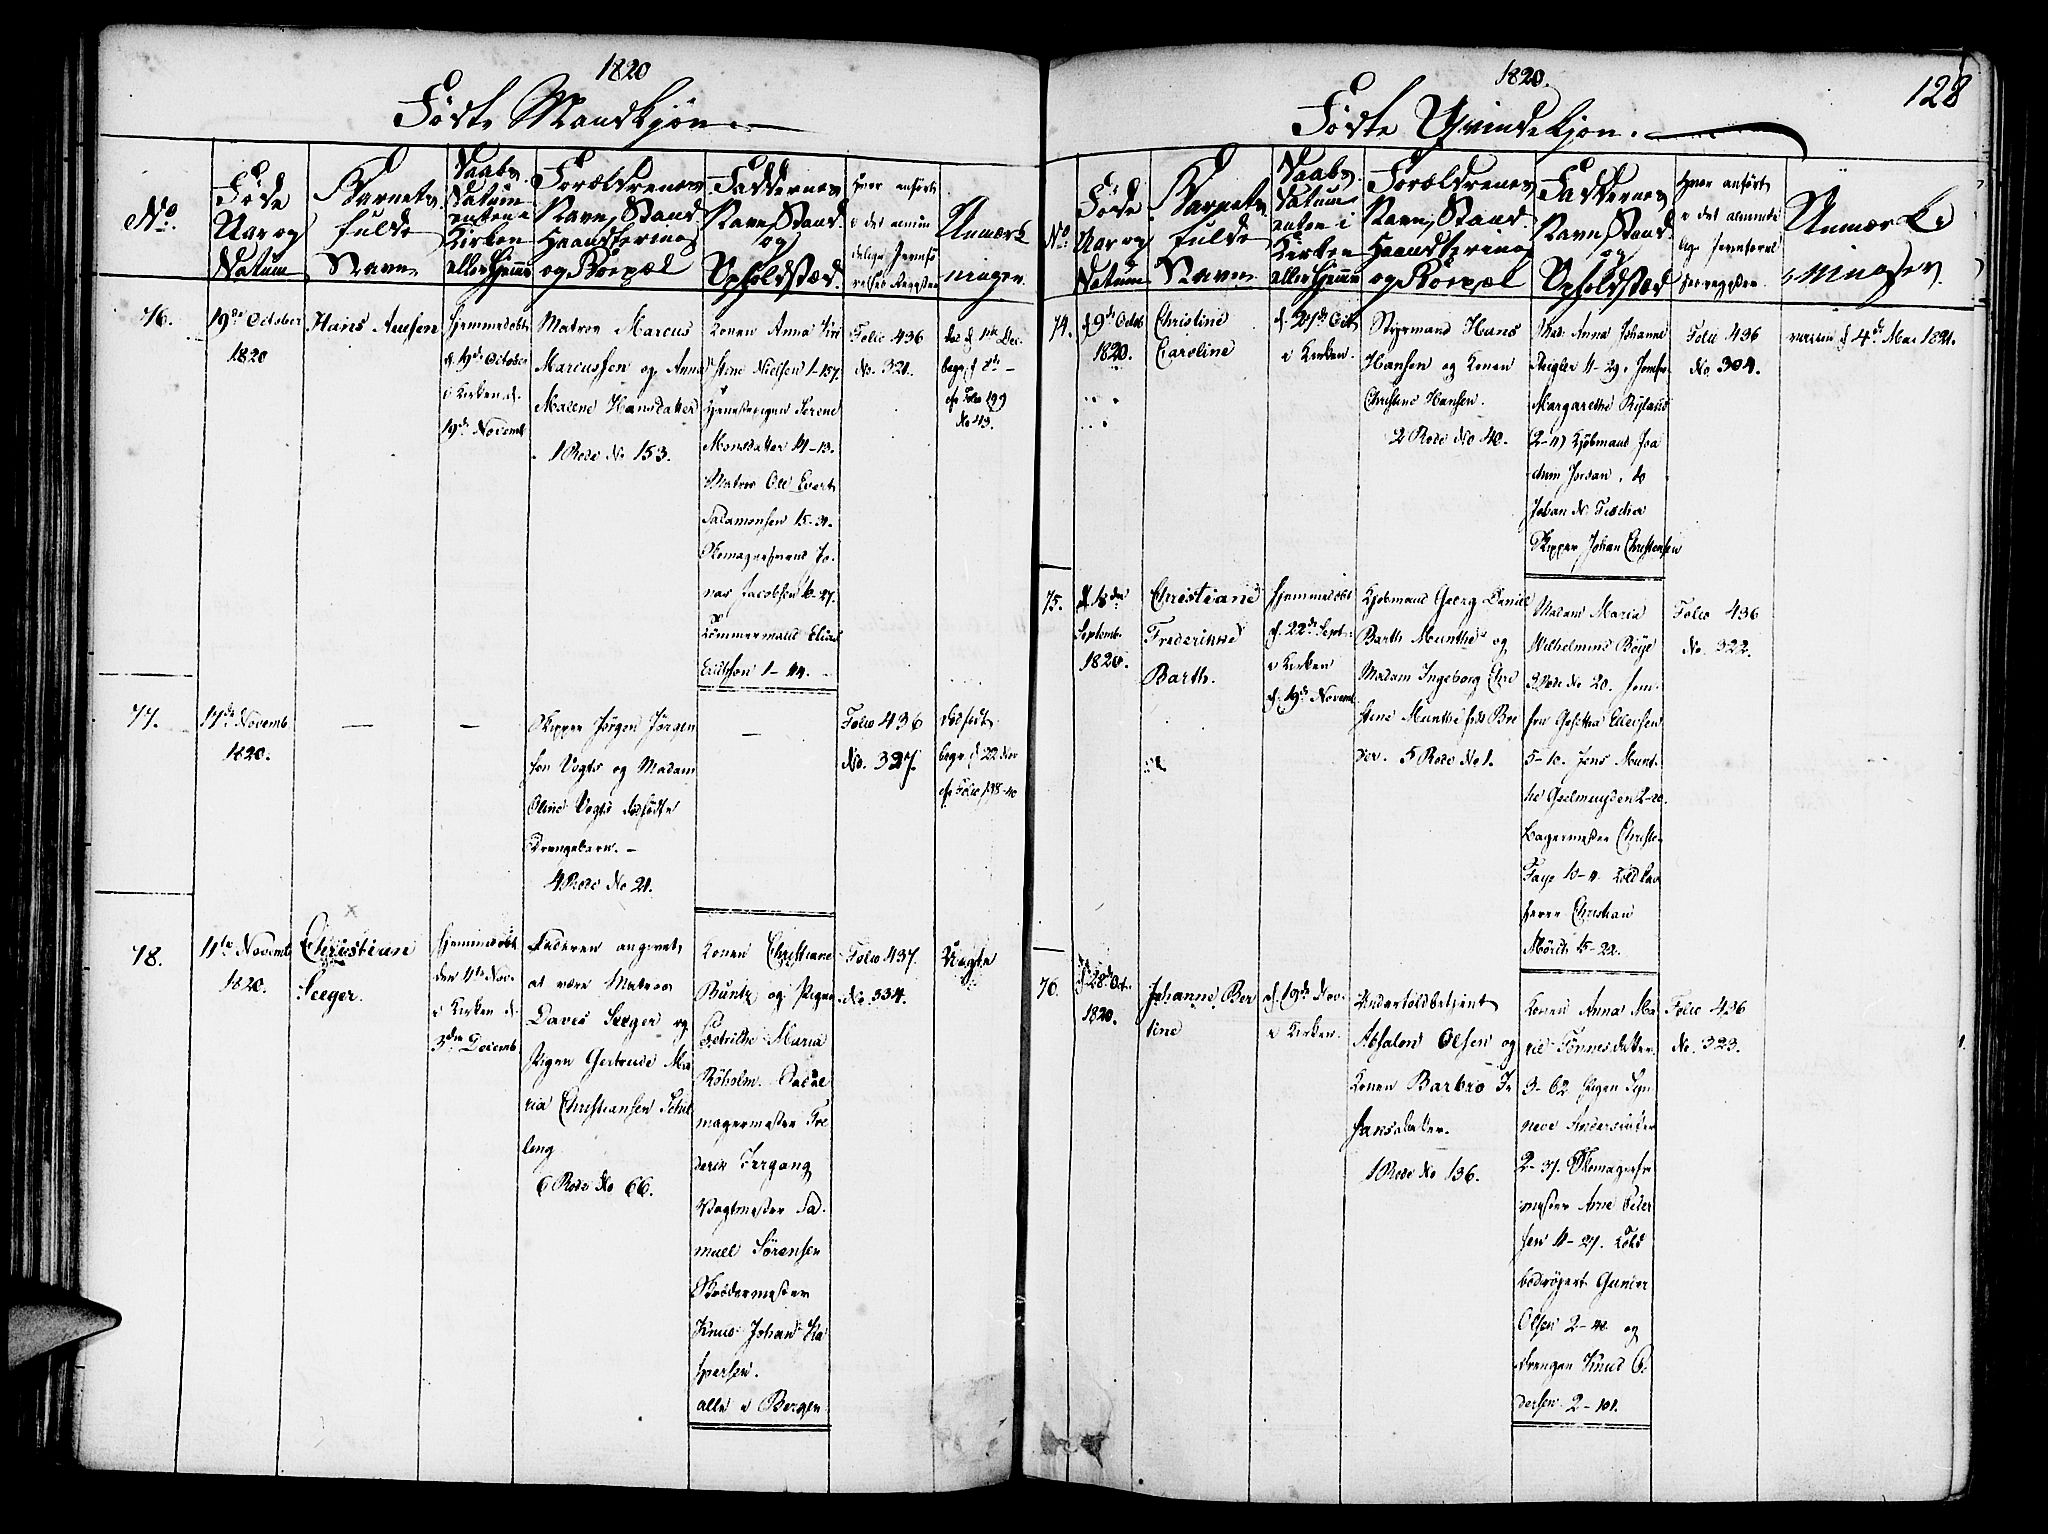 1820
Fødte Mandkjøn.
No.
Føde
Aar og
Datum
Barnets
fulde
Navn
Daabs
Datum
enten i
Kirken
eller hjemme
Forældrenes
Navn, Stand
Haandtering
og Boepæl
Faddernes
Navn, Stand
og
Opholdstæd.
Hvor anført
i det almin
delige Jevnfø
relses Register
Anmærk
ninger.
76.
19de October
1820
Hans Ansen
Hjemmedøbt
d. 19de October
i Kirken d.
19de Novemb
Matros Marcus
Marcussen og Anna
Malene Hansdatter
1 Rode No 153.
Konen Anna Kir
stine Nielsen 1-157.
Tjenestepigen Serene
Monsdatter 4-13.
Matros Ole Evert
Salamonsen 15-31.
Skomagersvend Jo
nas Jacobsen 6-27.
og
Tømmermand Elias
Erichsen 1-44.
Folio 436
No. 321.
død d. 1ste Dec.
begr. d. 8de
cfr Folio 199
No 43.
77.
17de Novemb
1820.
—
—
Skipper Jørgen Jørgen
sen Vogts og Madam
Oline Vogts dødfødte
Drengebarn.
4 Rode No 21.
—
Folio 436
No. 327.
dødfødt
begr. d. 22 Nov
cfr Folio 198-40
78.
11te Novemb
1820.
Christian
Seeger.
Hjemmedøbt
den 11te Nov.
i Kirken d.
3die Decemb
Faderen angivet
at være Matros
Daves Seeger og
Pigen Gertrude Ma
ria Christiansen Schil
ling
6 Rode No 66.
Konen Christiane
Buntz og Pigen
Petrikke Maria
Røholm. Sadel
magermester Fre
derik Irrgang
Vagtmester Sa
muel Sørensen
Skrædermester
Knud Johan Ka
spersen.
alle i Bergen
Folio 437.
No. 334.
Uægte
1820.
128
Fødte Qvindekjøn.
No.
Føde
Aar og
Datum
Barnets
fulde
Navn
Daabs
Datum
enten i
Kirken
eller hjemme
Forældrenes
Navn, Stand
Haandtering
og Boepæl
Faddernes
Navn, Stand
og
Opholdstæd
Hvor anført
i det alminde
lige Jevnførel
ses register
Anmærk
ninger.
74.
d. 9de Octob
1820.
Christine
Caroline
d. 27de Octb
i Kirken.
Styrmand Hans
Hansen og Konen
Christine Hansen.
2 Rode No 40.
Mad. Anna Johanne
Ziegler 4-29. Jomfr.
Margarethe Ryland
(2-4) Kjøbmand Joa
chim Jordan, do
Johan D. Fischer
Skipper Johan Christensen
Folio 436
No. 304.
vaccin. d. 4de Mai 1821.
75.
d. 18de
Septemb.
1820.
Christiane
Frederikke
Barth.
Hjemmedøbt
d. 22de Sept.
i Kirken
d. 19de Novemb
Kjøbmand Georg Daniel
Barth Munthe og
Madam Ingeborg Chri
stine Munthe født Bre
der. 5 Rode No 1.
Madam Maria
Wilhelmine Bøye
3 Rode No 20. Jom
fru Gesetha Ellersen
5-10. Jens Munt
he Geelmuyden 2-20.
Bagermester Christen
Faye 10-4. Told Cas
serer Christian
Mørch 15-22.
Folio 436
No. 322.
76
d. 28de Oct.
1820.
Johanne Ber
tine
d. 19de Nov.
i Kirken.
Underfoldbetjent
Absalon Olsen og
Konen Barbro Jo
hansdatter.
1 Rode No 136.
Konen Anna Ma
rie Tønnesdatter
3-62. Pigen Syn
neve Andersdatter
2-37. Skomagersv
mester Arne Peder
sen 4-27. Told
bedrøgert Gunder
Olsen 2-40. og
drengen Knud Pe
dersen 2-101.
Folio 436
No. 323.